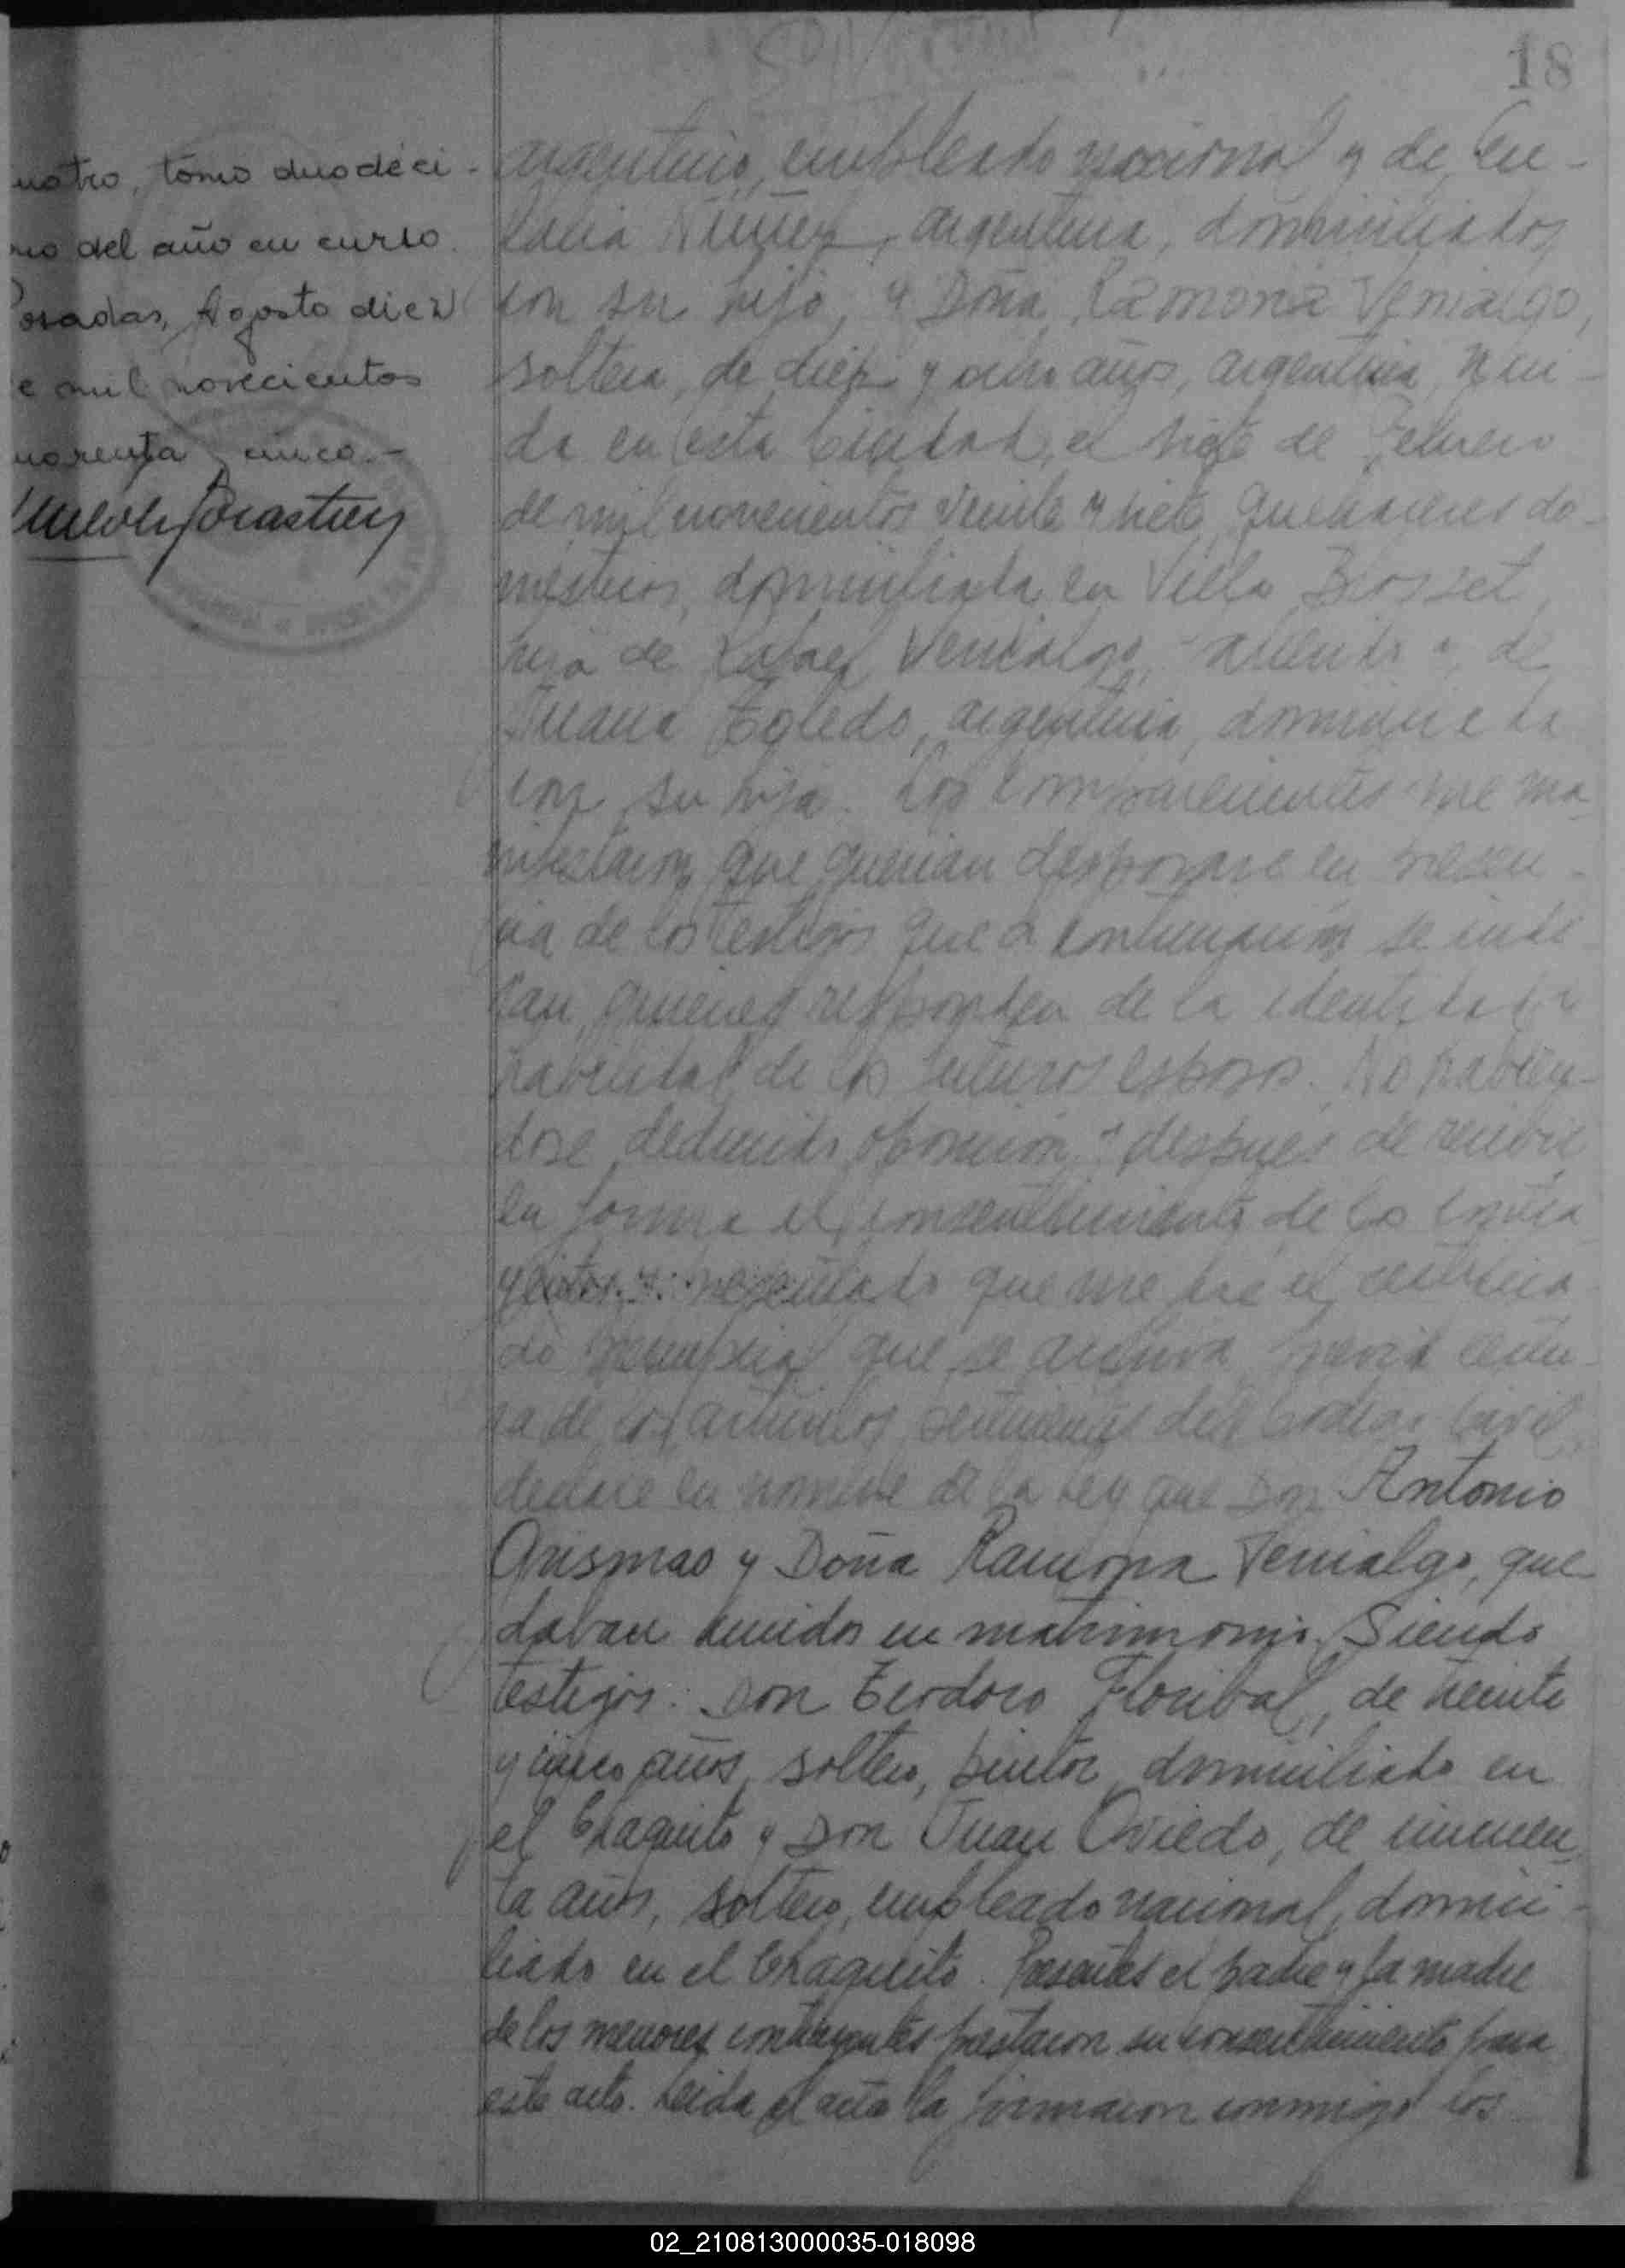 18
uatro, tomo duodéci-
mo del año en curso.
Posadas, Agosto diez
e mil novecientos
uarenta y cinco.-
argentino, empleado nacional y de Eu-
lalia Núñez, argentina, domiciliados
con su hijo, y Doña Ramona Venialgo,
soltera, de diez y ocho años, argentina, naci-
da en esta Ciudad, el siete de Febrero
de mil novecientos veinte y siete, quehaceres do-
mésticos, domiciliada en Villa Blosset,
hija de Rafael Venialgo, y de
Juana Toledo, argentina, domiciliada
con su hija. Los comparecientes me ma-
nifestaron que querian desposarse en presen-
cia de los testigos que a continuación se indi-
can, quienes responden de la identidad y
habilidad de los futuros esposos. No habién-
dose deducido oposición y despues de recibir
en forma el consentimiento de los contra-
yentes y presentado que me fue el certifica-
do prenupcial que se archiva, previa lectu-
ra de los artículos pertinentes del Código Civil,
declaré en nombre de la Ley que Don Antonio
y Doña Ramona Venialgo, que-
daban unidos en matrimonio. Siendo
testigos: Don Teodoro Floribal, de treinta
y cinco años, soltero, pintor, domiciliado en
el Chaquito y Don Juan Oviedo, de cincuen-
ta años, soltero, empleado nacional, domici-
liado en el Chaquito. Presentes el padre y la madre
de los menores contrayentes prestaron su consentimiento para
este acto. Leida el acta la firmaron conmigo los
02_210813000035-018098